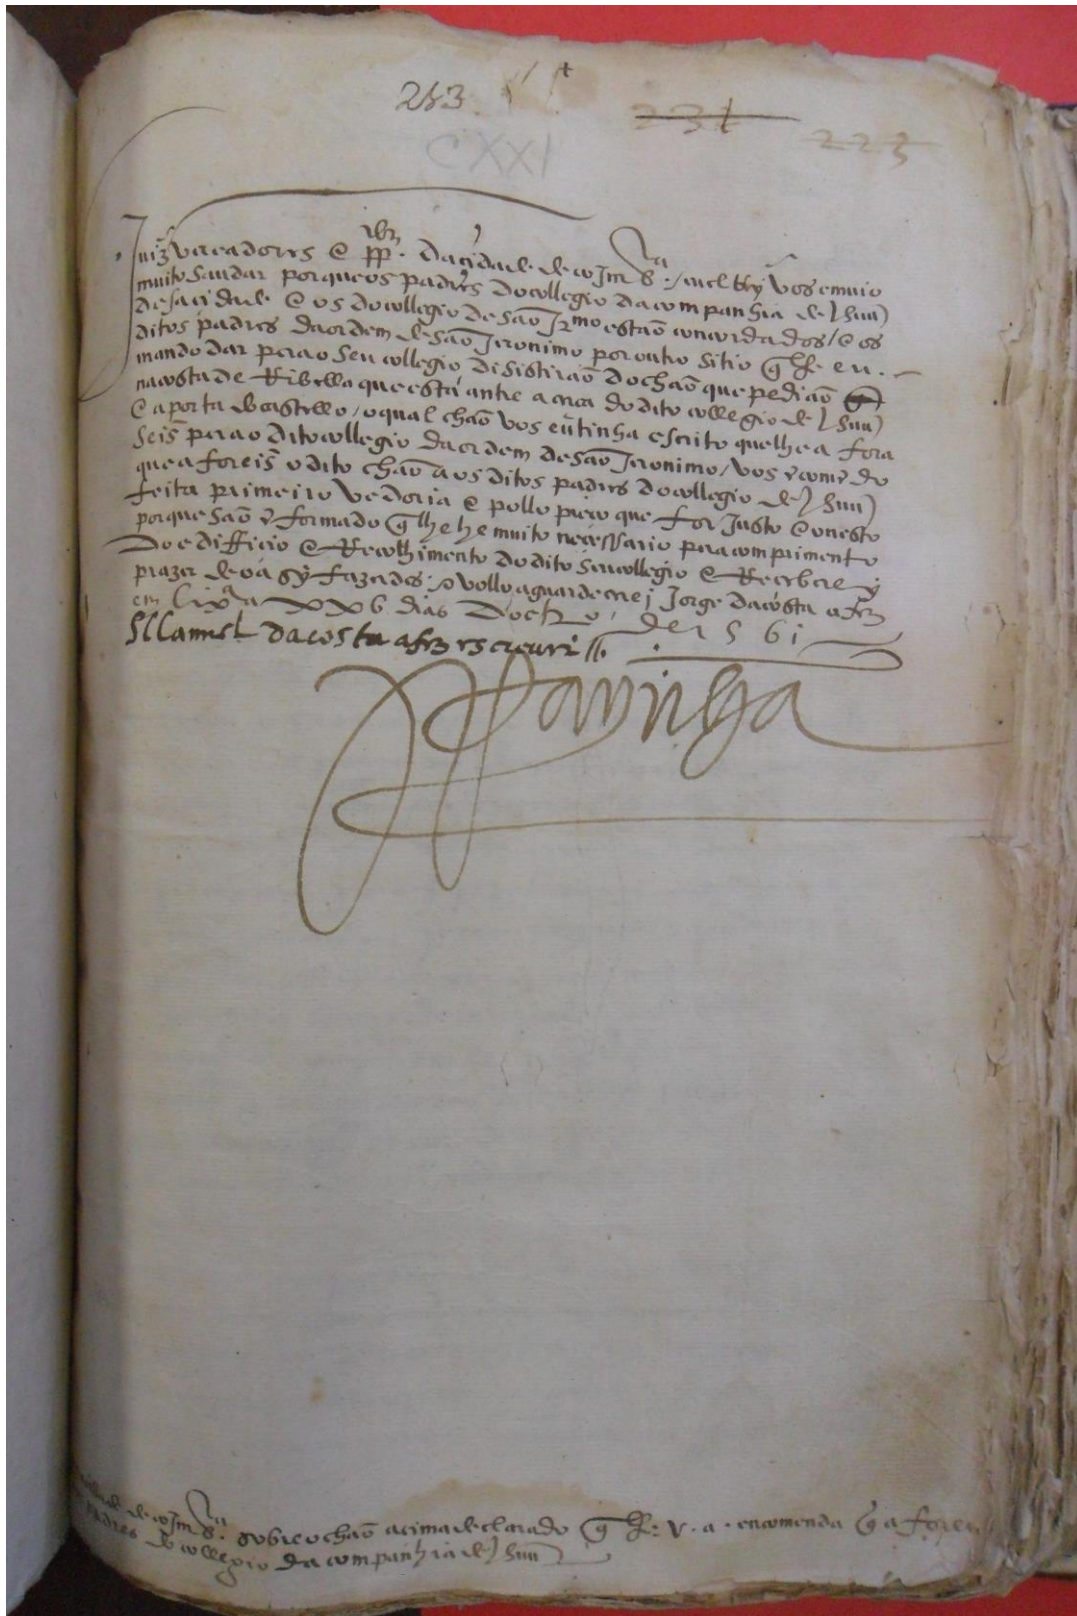 253
231
223
CXXI
Juiz vereadores e pp.res da cidade de coJm.bra / eu el Rey vos emuio
muito saudar porque os padres do collegio da companhia de Jhuu
desa cidade e os do collegio de são Jr.mo estão concordados / e os
ditos padres da ordem de são Jeronimo por outro sitio q lhe eu
mando dar pera o seu collegio disistirão do chão que pedião
na costa de Ribella que está antre a cerca do dito collegio de Jhuu
e a porta do castello / o qual chão vos eu tinha escrito que lhe a fora
seis pera o dito collegio da ordem de são Jeronimo / vos
que a foreis o dito chão a os ditos padres do collegio de Jhuu
feita primeiro vedoria e pollo preço que for Justo e onesto
porque são Jformado q lhe he muito necessario pera comprimento
do edifficio e Recolhimento do dito seu collegio e Receberey
prazer de o a sy fazerdes: e vollo aguardecerej Jorge da costa a fez
em lix.a a xxb dias doct.ro de 1561
Manuel da costa a fez escreuer
Raynha
cidade de coJm.bra sobre o chão acima declarado q lhe v. a. encomenda q a forem
padres do collegio da companhia de Jhuu